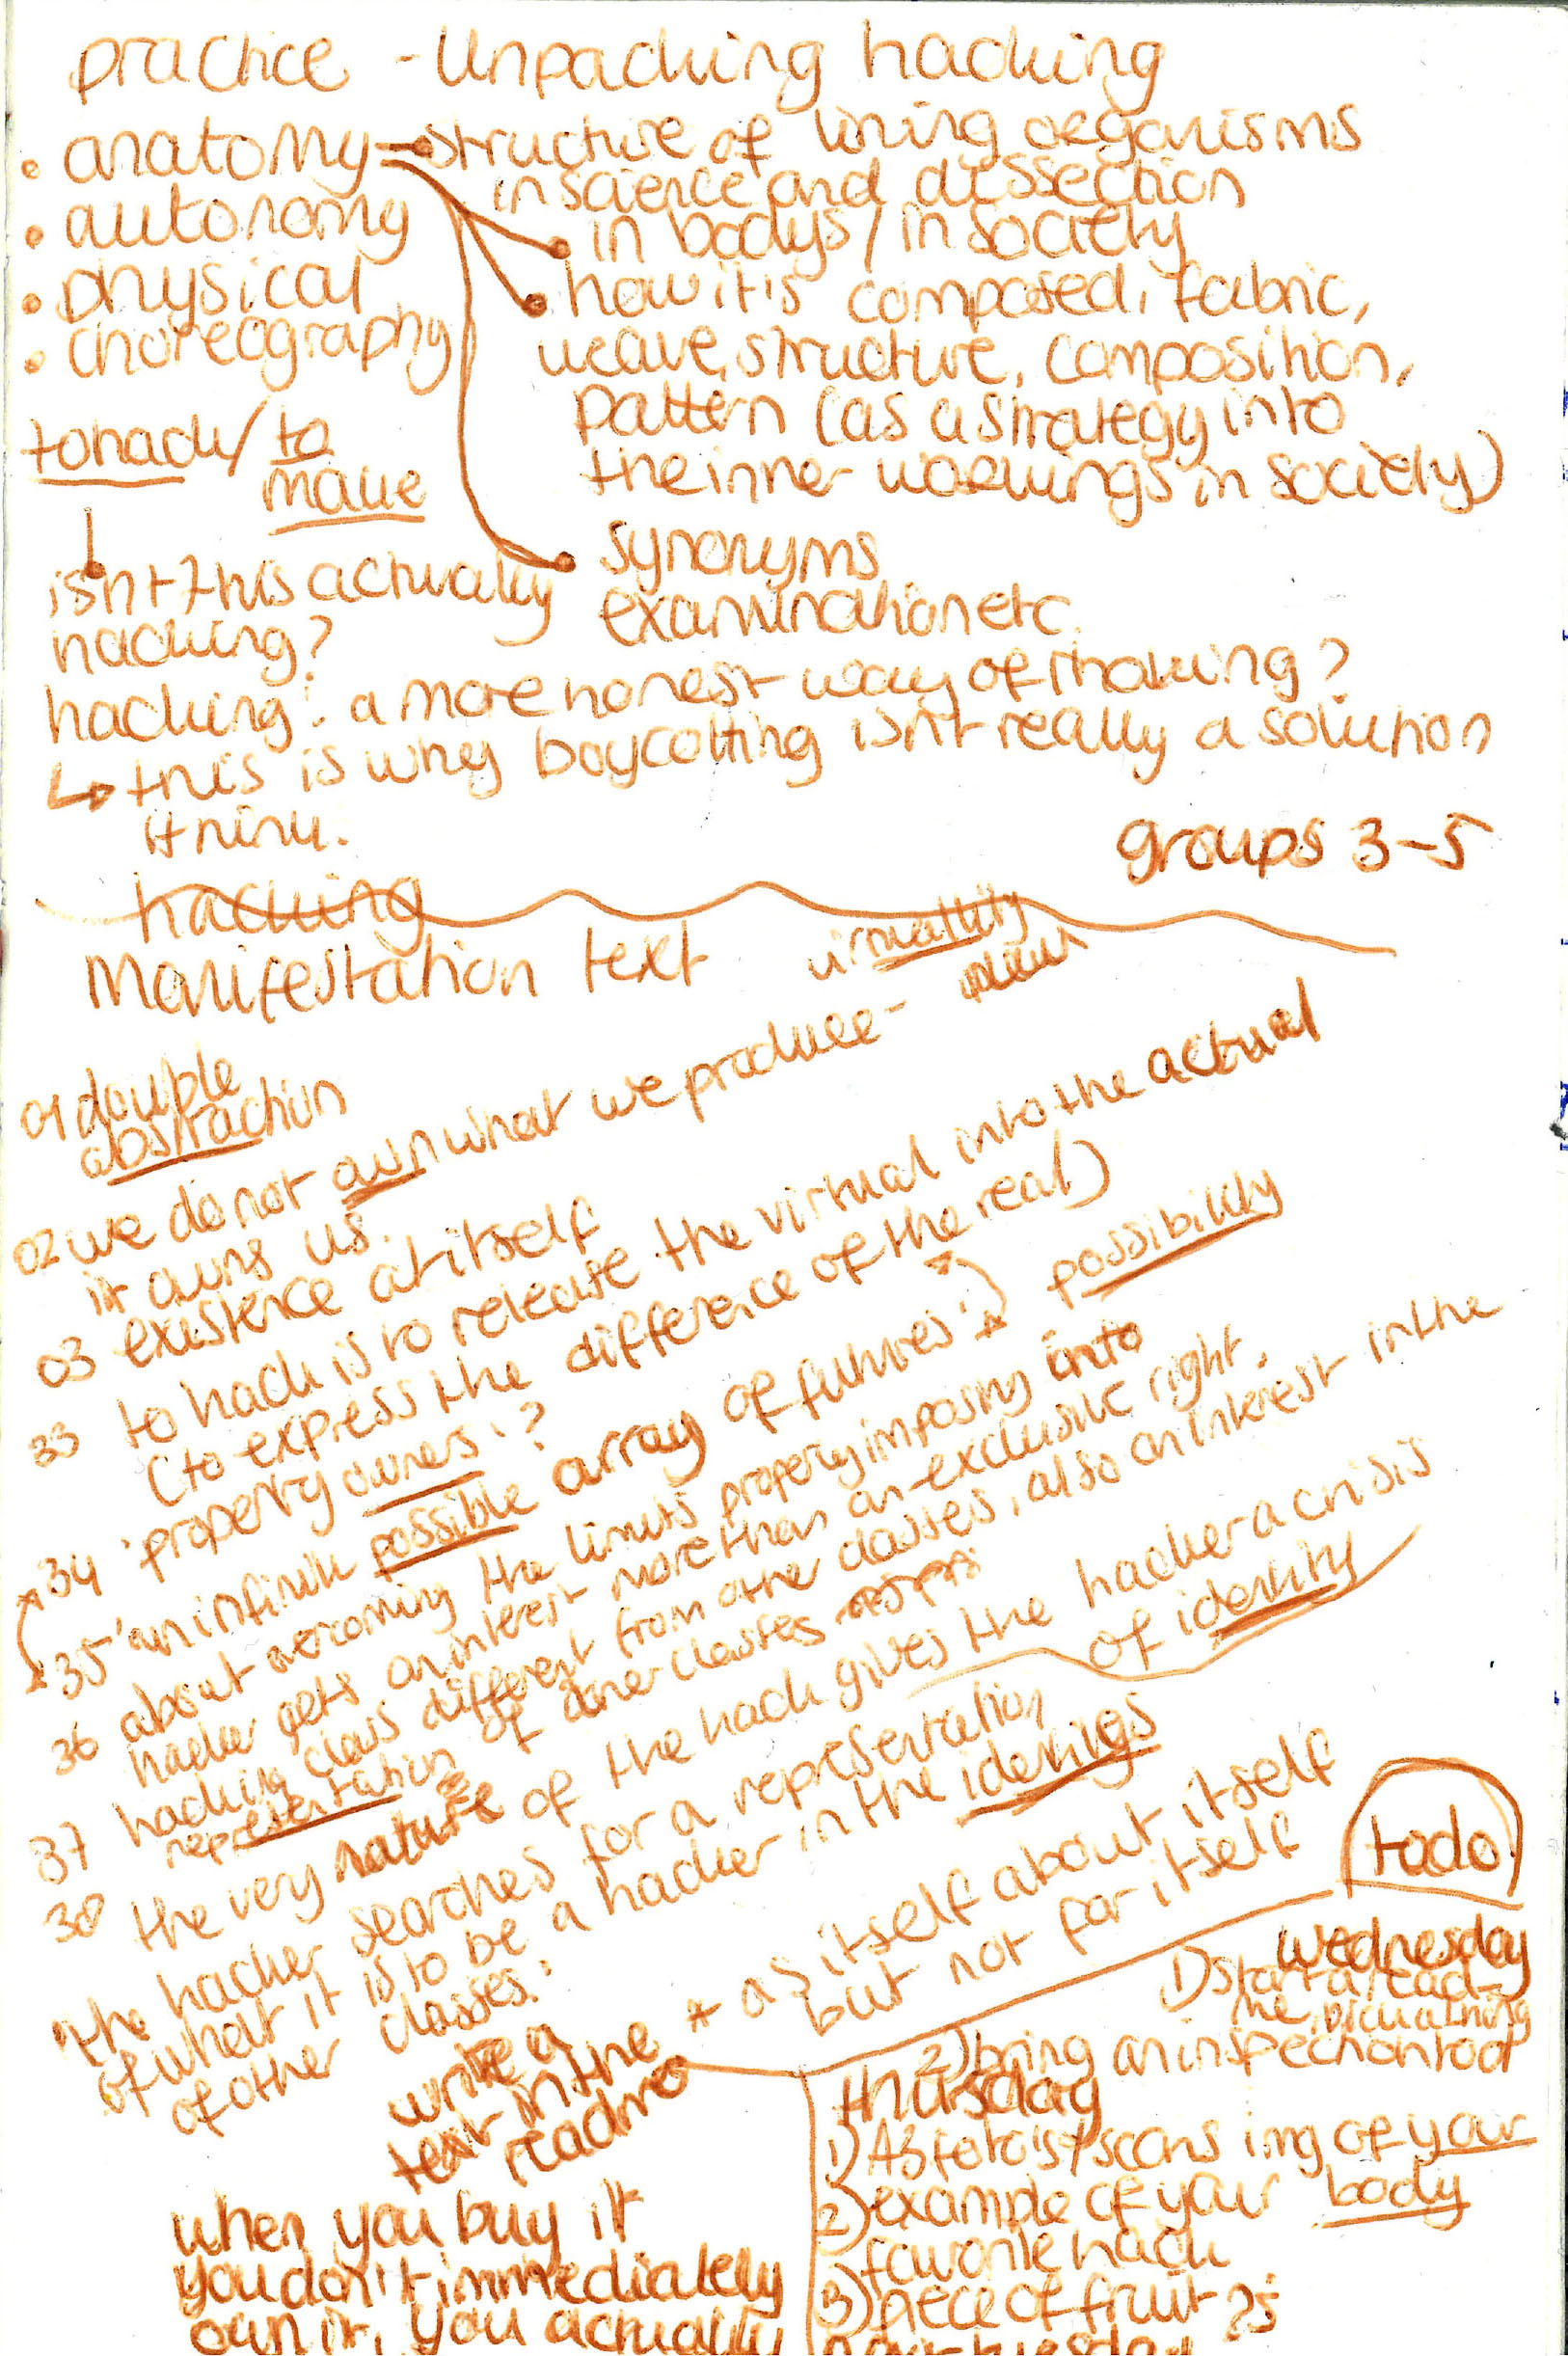 practice - Unpacking hacking
• anatomy
structure of living organisms
in science and dissection
• autonomy
in bodys / in society
• physical
how it is composed, fabric,
• choreography
weave, structure, composition,
pattern (as a strategy into
the inner workings in society)
to hack / to
make
synonyms
examination etc.
isnt this actually
hacking?
hacking: a more honest way of making?
this is why boycotting isnt really a solution
ithink.
groups 3-5
hacking
Manifestation text
01 double
abstraction
02 we do not own what we produce -
it owns us.
03 existence
itself
33 to hack is to release the virtual into the actual
(to express the difference of the real)
34 'property owners'?
possibility
35 'an infinite possible array of futures'
36 about overcoming the limits property imposing into
hacker gets an interest more than an exclusive right.
37 hacking class different from other classes, also an interest in the
representation of other classes
38 the very nature of the hack gives the hacker a crisis
of identity
the hacker searches for a representation
of what it is to be a hacker in the identings
of other classes.'
* as itself about itself
but not for itself
write a
text in the
readme
when you buy it
you don't immediately
own it, you actually
todo
wednesday
1) start a read
me
2) bring an inspection tool
thursday
1) A3 foto's/scans img of your
body
2) example of your
favorite hack
3) piece of fruit